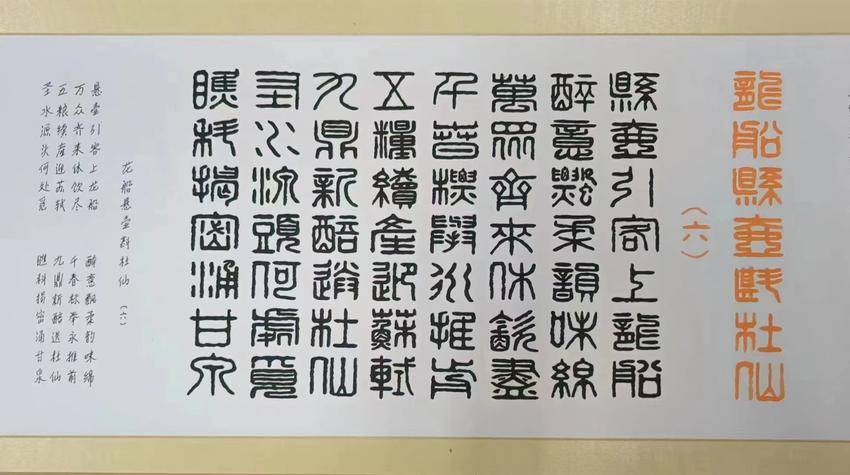 龍船縣壺斟杜仙
（六）
縣壺引客上龍船
醉意飄柔韻味綿
萬眾齊來休飲盡
千春舉永推前
五糧續產迎蘇軾
九鼎新醅送杜仙
聖水源頭何處覓
瞧料揭密涌甘泉
龙船悬壶斟杜仙（六）
悬壶引客上龙船
醉意飘柔韵味绵
万众齐来休饮尽
千春举永推前
五粮续产迎苏轼
九鼎新醅送杜仙
圣水源头何处觅
瞧料揭密涌甘泉